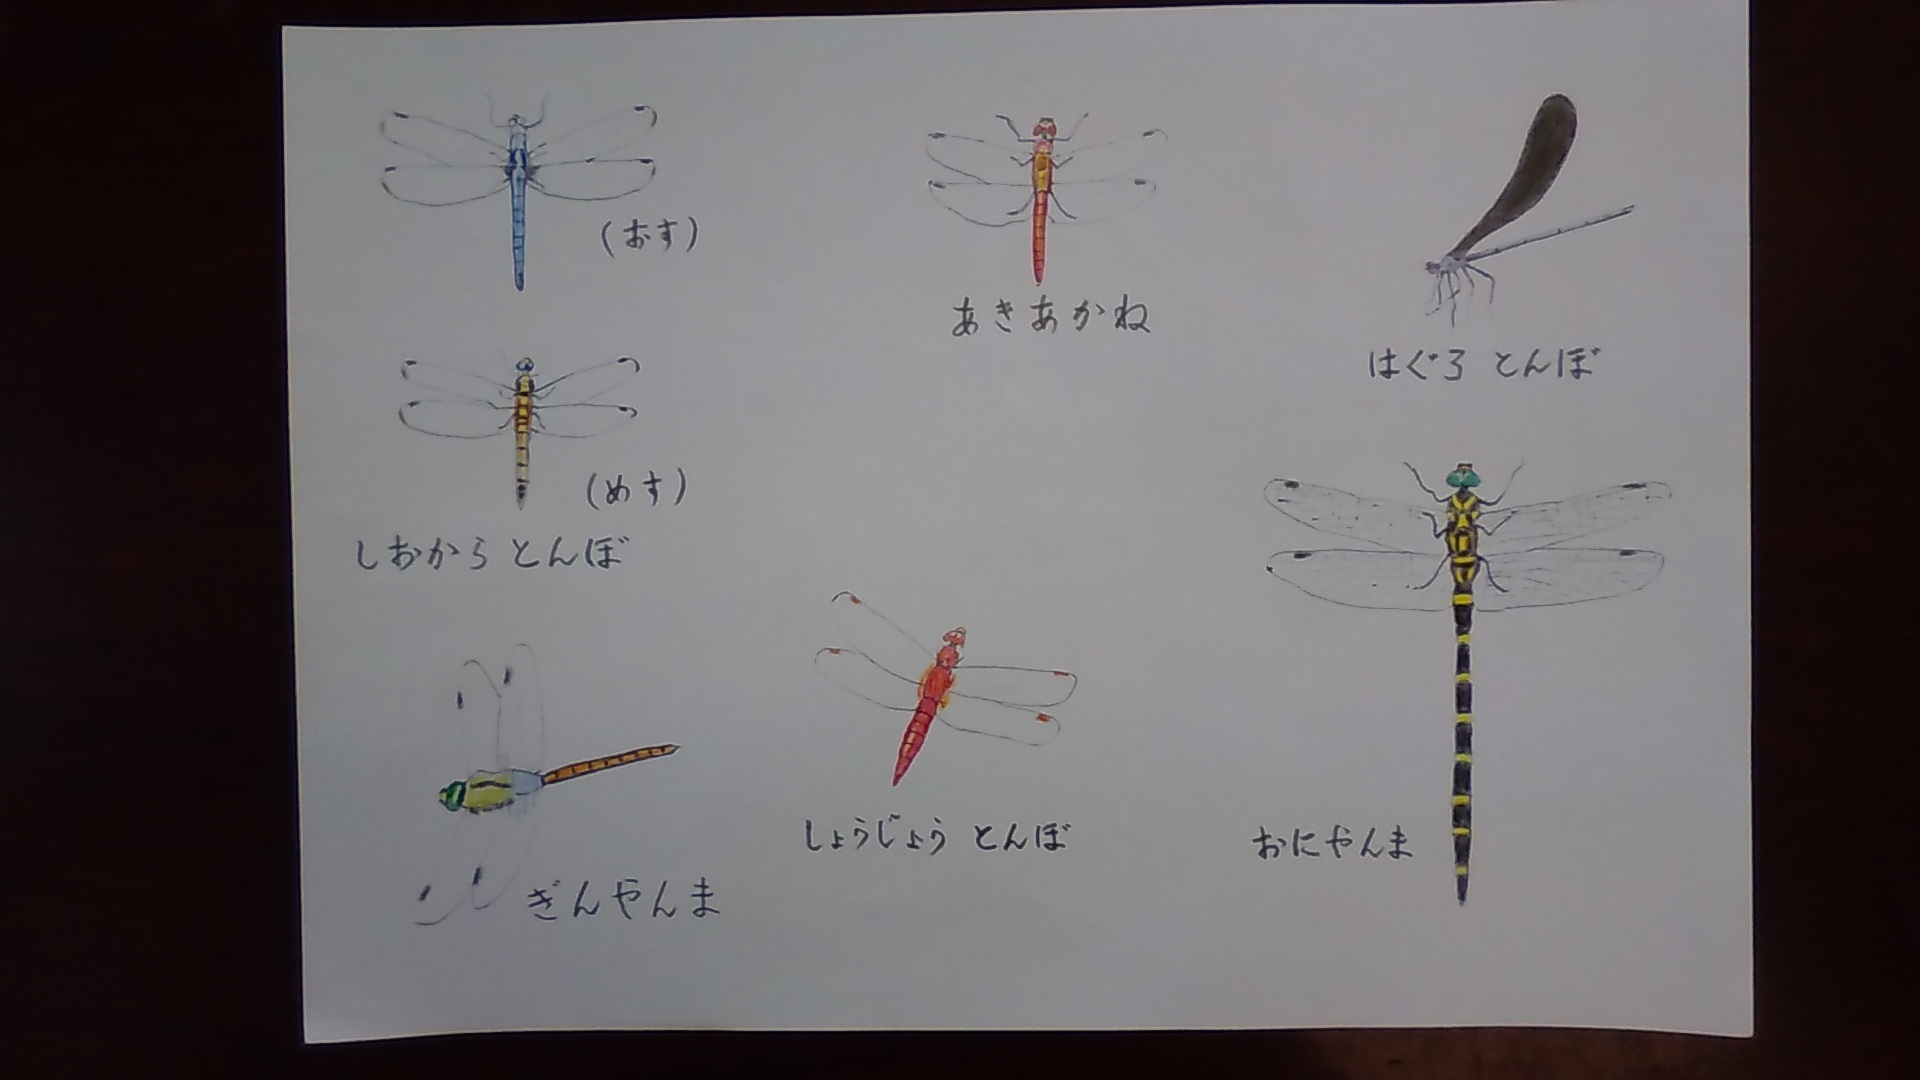 (おす)
あきあかね
はぐろ とんぼ
(めす)
しおから とんぼ
しょうじょう とんぼ
おにやんま
ぎんやんま